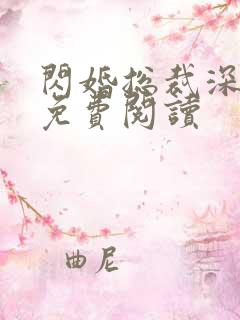 閃婚總裁深
免費閱讀
曲尼